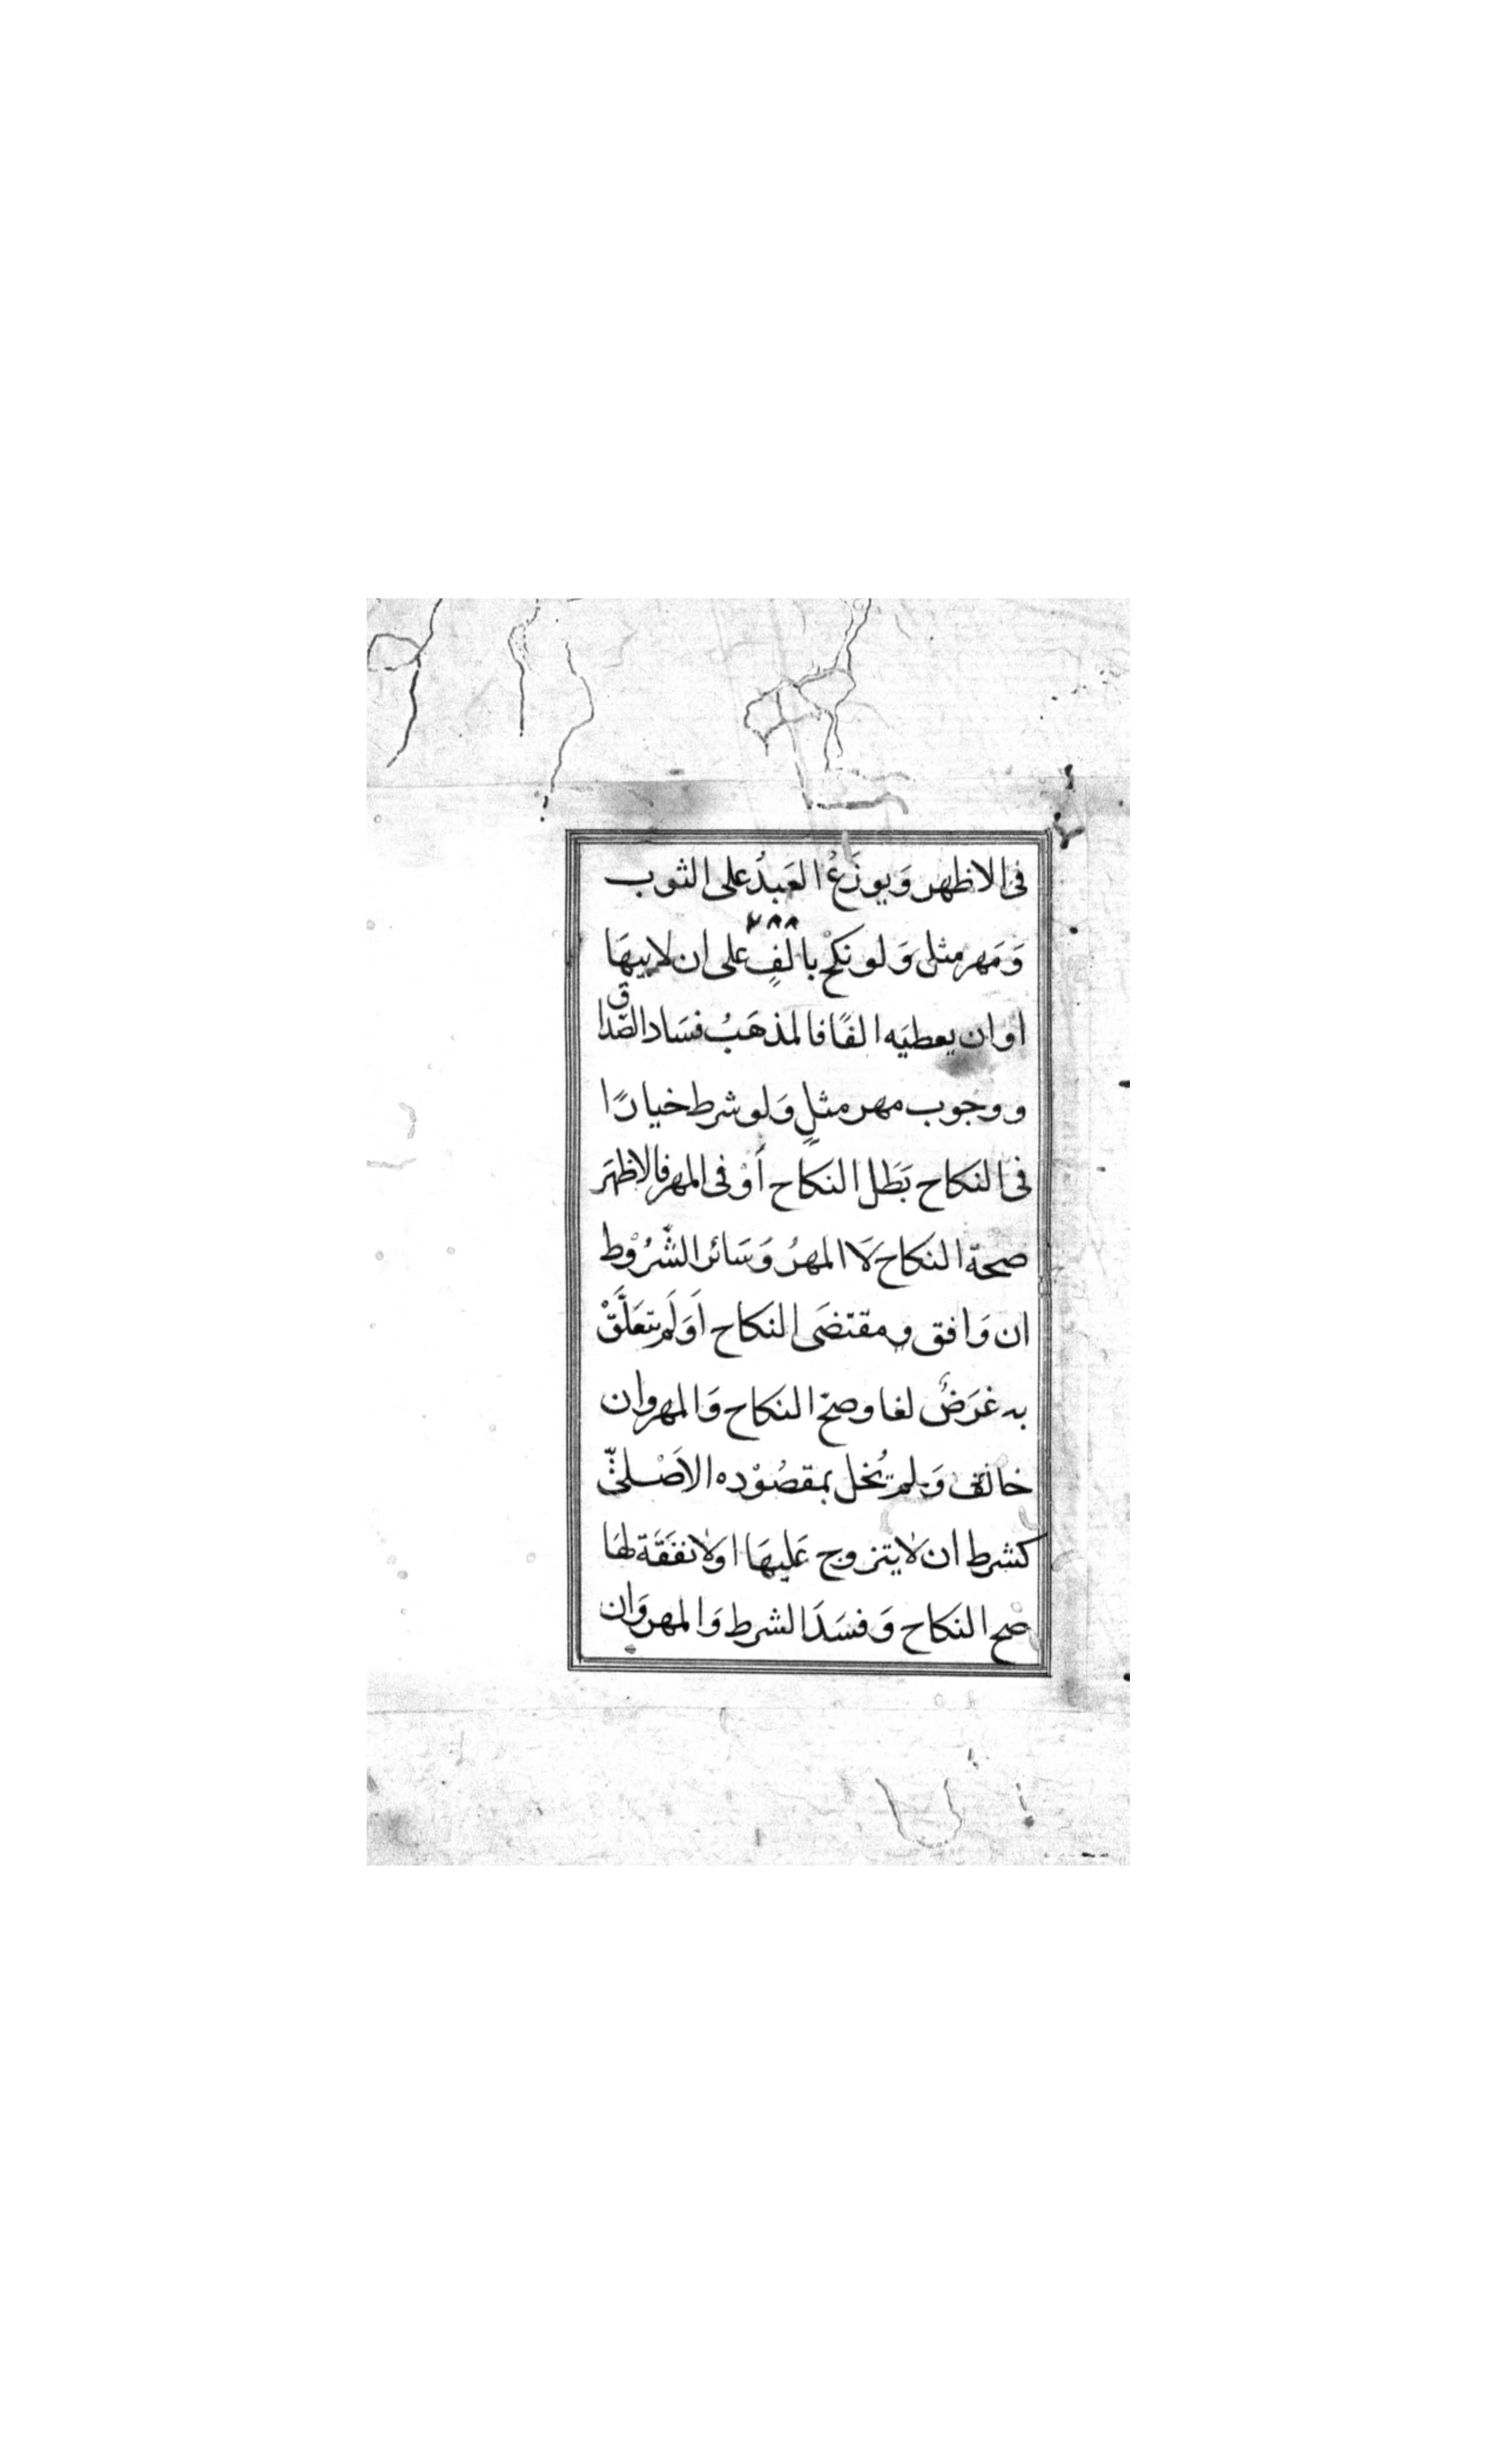 فى الاظهر وَيوزَعُ العَبدُ على الثوب
٢٨٨
وَمَهر مثل وَلو نكح بالفٍ على ان لابيهَا
او ان يعطيَه الفًا فالمذهَبُ فسَاد الصّداق
ووجوب مهر مثلٍ وَلو شرط خيارًا
فى النكاح بَطل النكاح أوْ فى المهر فالاظهَر
صحة النكاح لَا المهرُ وَسَائر الشّرُوْط
ان وَافق ومقتضَى النكاح اَوَلَم يتعَلَّقْ
به غرَضٌ لغا وصحّ النكاح وَالمهر وان
خالف وَلم يُخل بمقصُوْده الاَصْلىّ
كشرط ان لايتزوج عَليهَا اولانفقَة لهَا
صح النكاح وَفسَدَ الشرط وَالمهر وَان